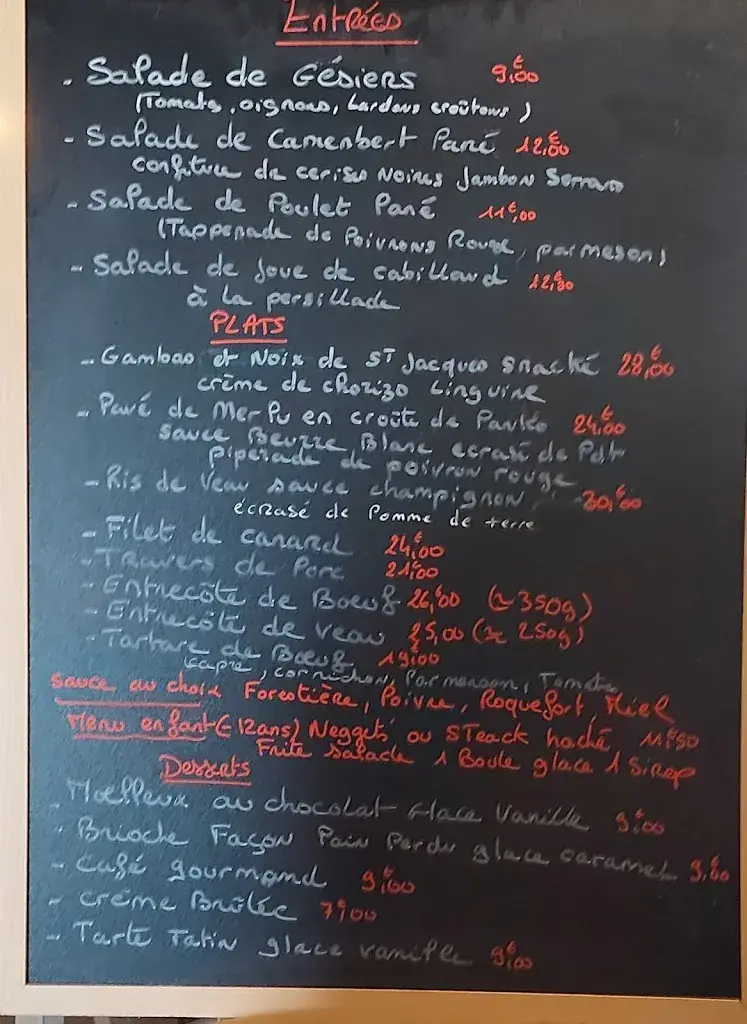 Entrées
- Salade de Gésiers 9,€00
(Tomate, oignons, Lardons croûtons)
- Salade de Camenbert Pané 12,€00
confiture de cerises Noires Jambon Serrano
- Salade de Poulet Pané 11,€00
(Tappenade de Poivrons Rouge, parmesan)
- Salade de joue de cabillaud 12,€00
à la persillade
PLATS
- Gambas et Noix de ST Jacques snacké 28,€00
crème de chorizo Linguine
- Pavé de Merlu en croûte de Panko 24,€00
sauce Beurre Blanc ecrasé de Pdt
piperade de poivron rouge
- Ris de Veau sauce champignon 30,€00
écrasé de Pomme de terre
- Filet de canard 24,€00
- Travers de Porc 21,€00
- Entrecôte de Boeuf 26,€00 (≃ 350g)
- Entrecôte de veau 25,00 (≃ 250g)
- Tartare de Boeuf 19,€00
capre, cornichon, Parmesan, Tomate
Sauce au choix Forestière, Poivre, Roquefort, Miel
Menu enfant (- 12ans) Neggets ou STeack haché 11,€50
Frite salade 1 Boule glace 1 Sirop
Desserts
- Moelleux au chocolat Glace Vanille 9,€00
- Brioche Façon Pain Perdu glace caramel 9,€00
- Café gourmand 9,€00
- Crème Brûlée 7,€00
- Tarte Tatin glace vanille 9,€00